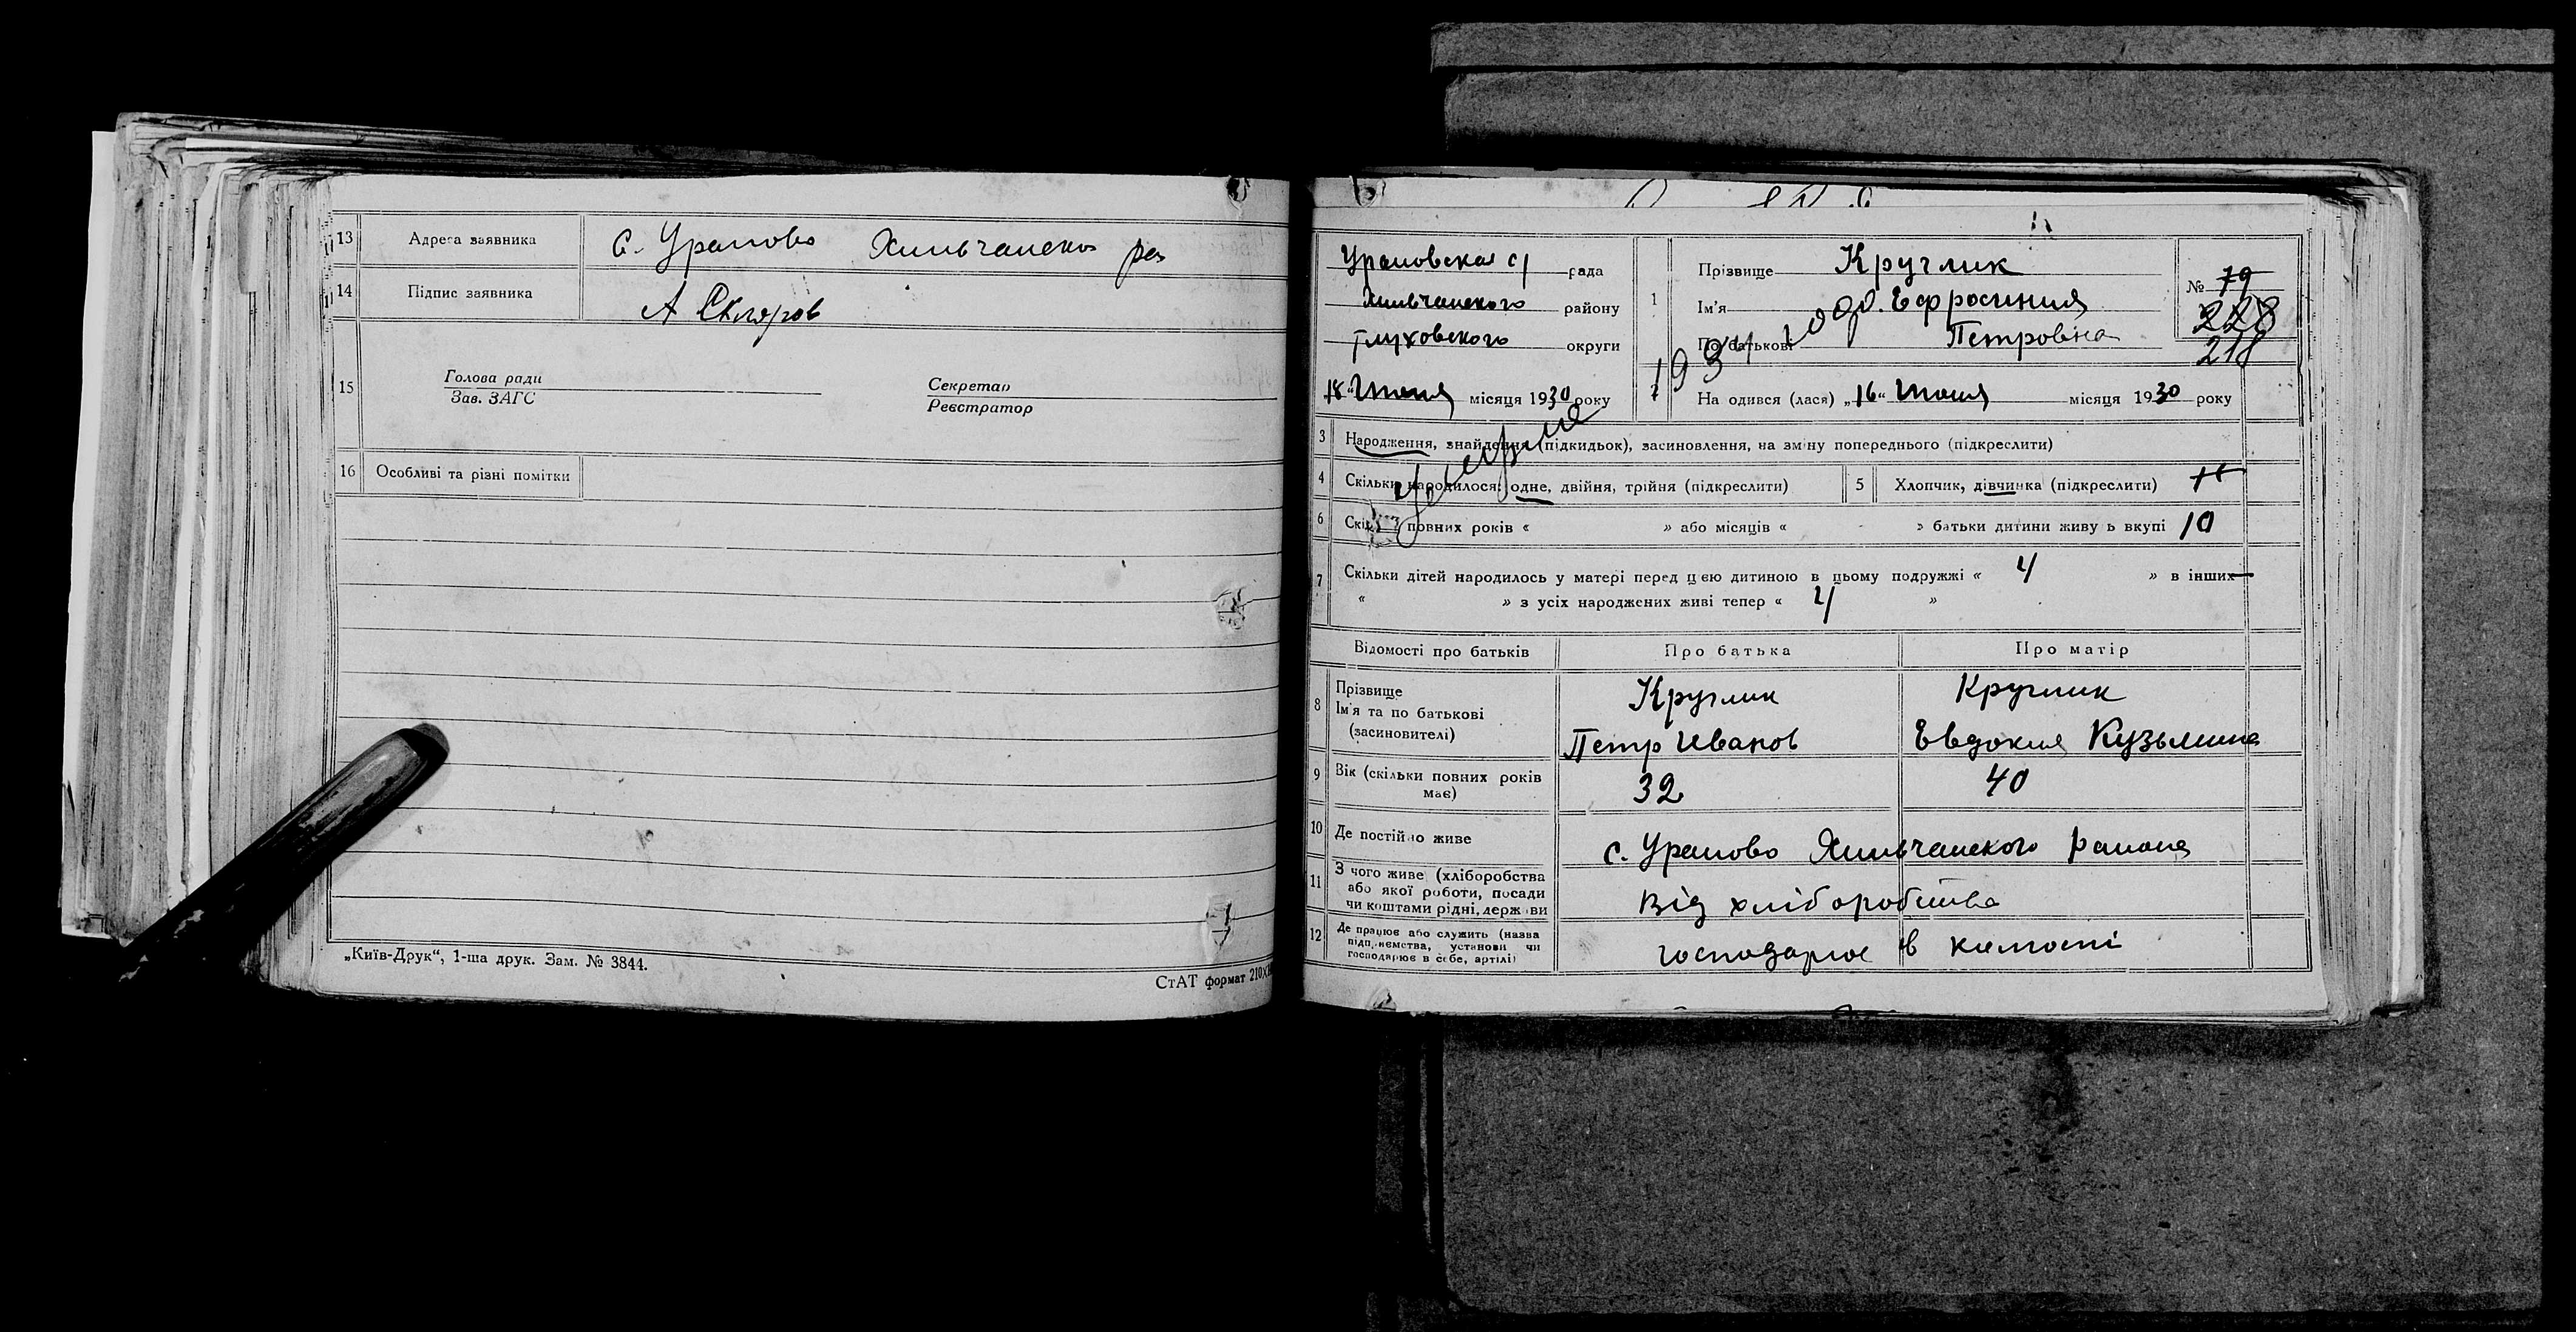 13 Адреса заявника с. Уралово Хильчанско рай
14 Підпис заявника А Скляров
15 Голова ради
Зав. ЗАГС
Секретар
Реєстратор
16 Особливі та різні помітки
„Київ-Друк“, 1-ша друк. Зам. № 3844.
СтАТ формат 210X
Ураловская с/ рада
Хильчанского району
Глуховского округи
„18“ Июня місяця 1930 року
1 Прізвище Круглик
Ім'я Ефросиния
По батькові Петровна
№ 79
228
218
2 На одився (лася) „16“ Июня місяця 1930 року
1934 году
умерла
3 Народження, знайдення (підкидьок), засиновлення, на зміну попереднього (підкреслити)
4 Скільки народилося: одне, двійня, трійня (підкреслити)
5 Хлопчик, дівчинка (підкреслити)
6 Скільки повних років « » або місяців « » батьки дитини живу ь вкупі 10
7 Скільки дітей народилось у матері перед цією дитиною в цьому подружжі « 4 » в інших —
« » з усіх народжених живі тепер « 4 »
Відомості про батьків Про батька Про матір
8 Прізвище
Ім'я та по батькові
(засиновителі)
Круглик
Петр Иванов
Круглик
Евдокия Кузьмина
9 Вік (скільки повних років
має)
32 40
10 Де постійно живе с. Уралово Хильчанского района
11 З чого живе (хліборобства
або якої роботи, посади
чи коштами рідні, держ ви
від хліборобства
12 Де працює або служить (назва
підп, иємства, установи чи
господарює в себе, артілі)
господарює в